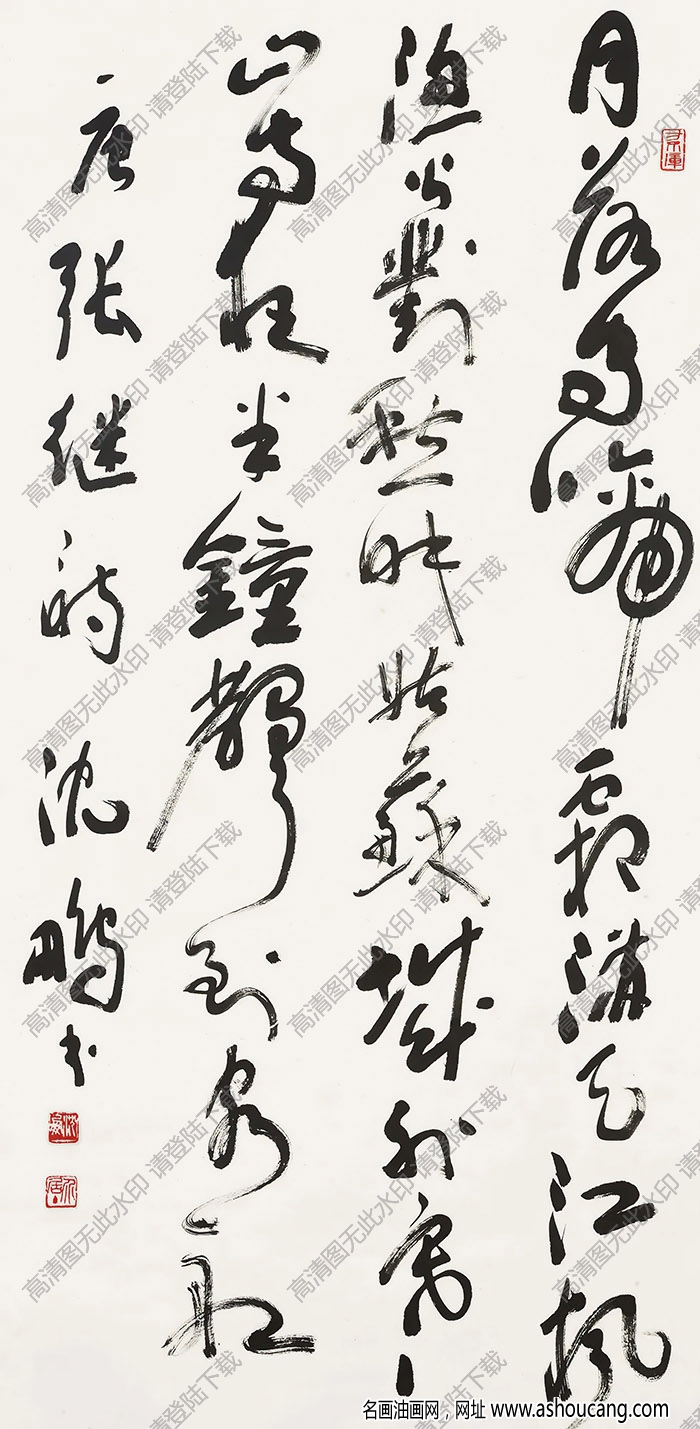 月落烏啼霜滿天江楓
漁火對愁眠姑蘇城外寒
山寺夜半鐘聲到客船
唐張继詩
沈鵬书
高清图无此水印 请登陆下载
名画油画网，网址 www.ashoucang.com